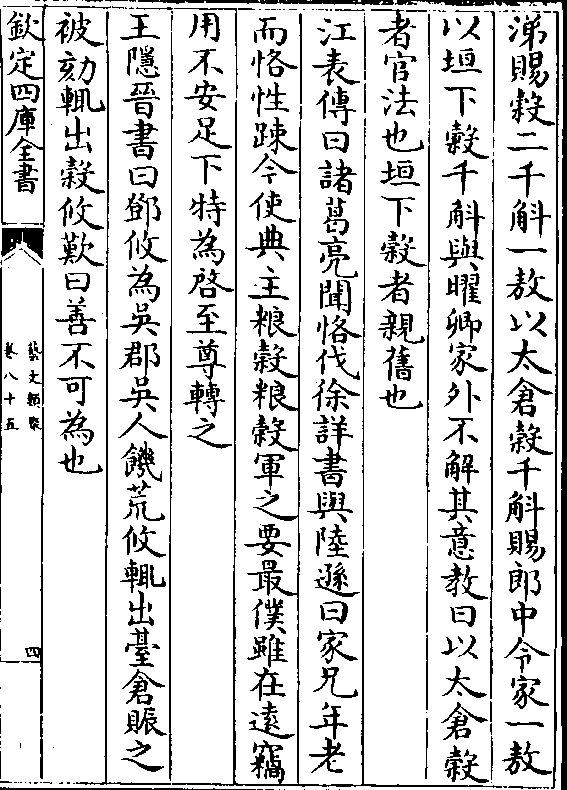 涕賜穀二千斛一敖以太倉穀千斛賜郎中令家一敖
以垣下穀千斛與曜卿家外不解其意教曰以太倉穀
者官法也垣下穀者親舊也
江表傳曰諸葛亮聞恪伐徐詳書與陸遜曰家兄年老
而恪性踈今使典主粮穀粮穀軍之要最僕雖在遠竊
用不安足下特為啓至尊轉之
王隱晉書曰鄧攸為吳郡吳人饑荒攸輒出臺倉賑之
被劾輒出穀攸歎曰善不可為也
欽定四庫全書
藝文類聚
卷八十五
四